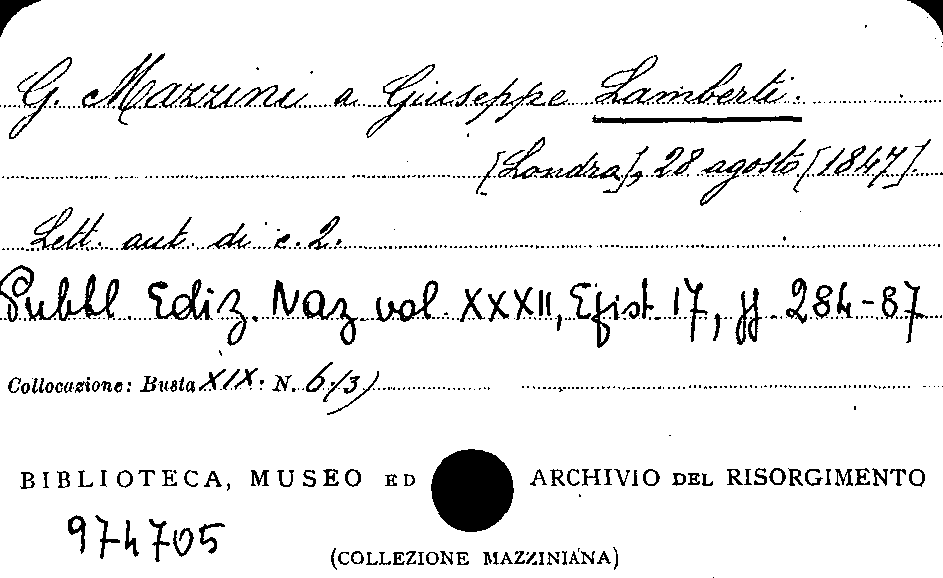 G. Mazzini a Giuseppe Lamberti.
[Londra], 28 agosto [1847].
Lett. aut. di c. 2.
Pubbl. Ediz. Naz. vol. XXXII, Epist. 17, pp. 284-87
Collocazione: Busta XIX. N. 6 (3)
BIBLIOTECA, MUSEO ED ARCHIVIO DEL RISORGIMENTO
974705
(COLLEZIONE MAZZINIANA)